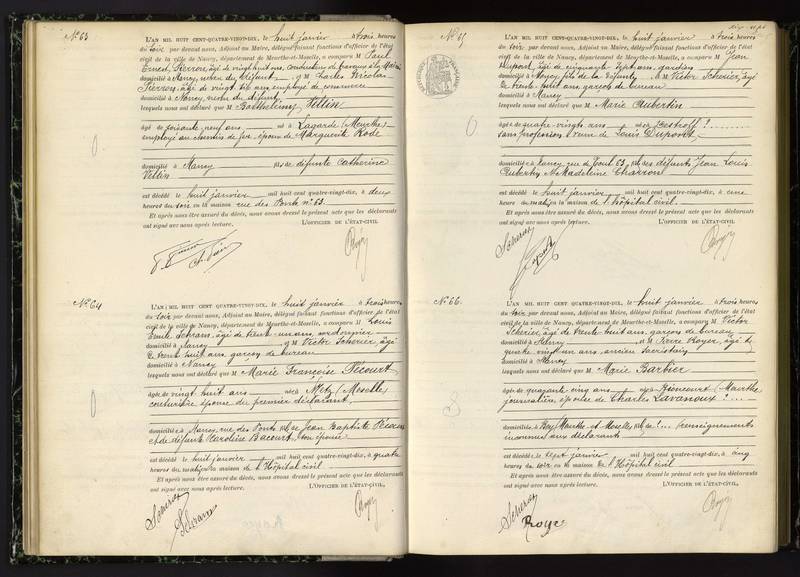 N° 63
L'AN MIL HUIT CENT-QUATRE-VINGT-DIX, le huit janvier à trois heures
du soir par devant nous, Adjoint au Maire, délégué faisant fonctions d'officier de l'état
civil de la ville de Nancy, département de Meurthe-et-Moselle, a comparu M Paul
Ernest Pierron, âgé de vingt huit ans, conducteur de travaux à la
domicilié à Nancy, neveu du défunt & M Charles Nicolas
Pierron, âgé de vingt ans, employé de commerce
domicilié à Nancy, neveu du défunt
lesquels nous ont déclaré que M Barthélemy Vittin
âgé de soixante neuf ans né à Lagarde (Meurthe)
employé au chemin de fer, époux de Marguerite Rode
domicilié à Nancy fils de défunte Catherine
Vittin
est décédé le huit janvier mil huit cent quatre-vingt-dix, à deux
heures du soir en la maison rue des Ponts n° 63.
Et après nous être assuré du décès, nous avons dressé le présent acte que les déclarants
ont signé avec nous après lecture. L'OFFICIER DE L'ÉTAT-CIVIL
N° 64
L'AN MIL HUIT CENT QUATRE-VINGT-DIX, le huit janvier à trois heures
du soir par devant nous, Adjoint au Maire, délégué faisant fonctions d'officier de l'état
civil de la ville de Nancy, département de Meurthe-et-Moselle, a comparu M Louis
Emile âgé de trente un ans, cordonnier
domicilié à Nancy & M Victor Scherier, âgé
de trente huit ans, garçon de bureau
domicilié à Nancy
lesquels nous ont déclaré que M Marie Françoise Pécourt
âgée de vingt huit ans née à Metz (Moselle)
couturière épouse du premier déclarant
domiciliée à Nancy, rue des Ponts fille de Jean Baptiste Pécourt
et de défunte Caroline Bacourt, son épouse
est décédée le huit janvier mil huit cent quatre-vingt-dix, à quatre
heures du matin en la maison de l'Hôpital civil
Et après nous être assuré du décès, nous avons dressé le présent acte que les déclarants
ont signé avec nous après lecture. L'OFFICIER DE L'ÉTAT-CIVIL,
N° 65
L'AN MIL HUIT CENT QUATRE-VINGT-DIX, le huit janvier à trois heures
du soir par devant nous, Adjoint au Maire, délégué faisant fonctions d'officier de l'état
civil de la ville de Nancy, département de Meurthe-et-Moselle, a comparu M Jean
Dupont, âgé de cinquante sept ans, jardinier
domicilié à Nancy, fils de la défunte & M Victor Scherier, âgé
de trente huit ans, garçon de bureau
domicilié à Nancy
lesquels nous ont déclaré que M Marie Aubertin
âgée de quatre-vingts ans née à Bestroff ?
sans profession, veuve de Louis Dupont
domiciliée à Nancy, rue de Toul 63, fille des défunts Jean Louis
Aubertin & Madeleine Charron
est décédée le huit janvier mil huit cent quatre-vingt-dix, à une
heure du matin en la maison de l'Hôpital civil.
Et après nous être assuré du décès, nous avons dressé le présent acte que les déclarants
ont signé avec nous après lecture. L'OFFICIER DE L'ÉTAT-CIVIL
N° 66.
L'AN MIL HUIT CENT QUATRE-VINGT-DIX, le huit janvier à trois heures
du soir par devant nous, Adjoint au Maire, délégué faisant fonctions d'officier de l'état
civil de la ville de Nancy, département de Meurthe-et-Moselle, a comparu M Victor
Scherier, âgé de trente huit ans, garçon de bureau
domicilié à Nancy & M Pierre Royer, âgé de
quatre vingt un ans, ancien sacristain
domicilié à Nancy
lesquels nous ont déclaré que M Marie Barbier
âgée de quarante cinq ans née à Bioncourt (Meurthe)
journalière, épouse de Charles Lavanoux ?
domiciliée à (Meurthe et Moselle) fille de ? renseignements
inconnus aux déclarants
est décédée le sept janvier mil huit cent quatre-vingt-dix, à cinq
heures du soir en la maison de l'Hôpital civil
Et après nous être assuré du décès, nous avons dressé le présent acte que les déclarants
ont signé avec nous après lecture. L'OFFICIER DE L'ÉTAT-CIVIL,
Royer